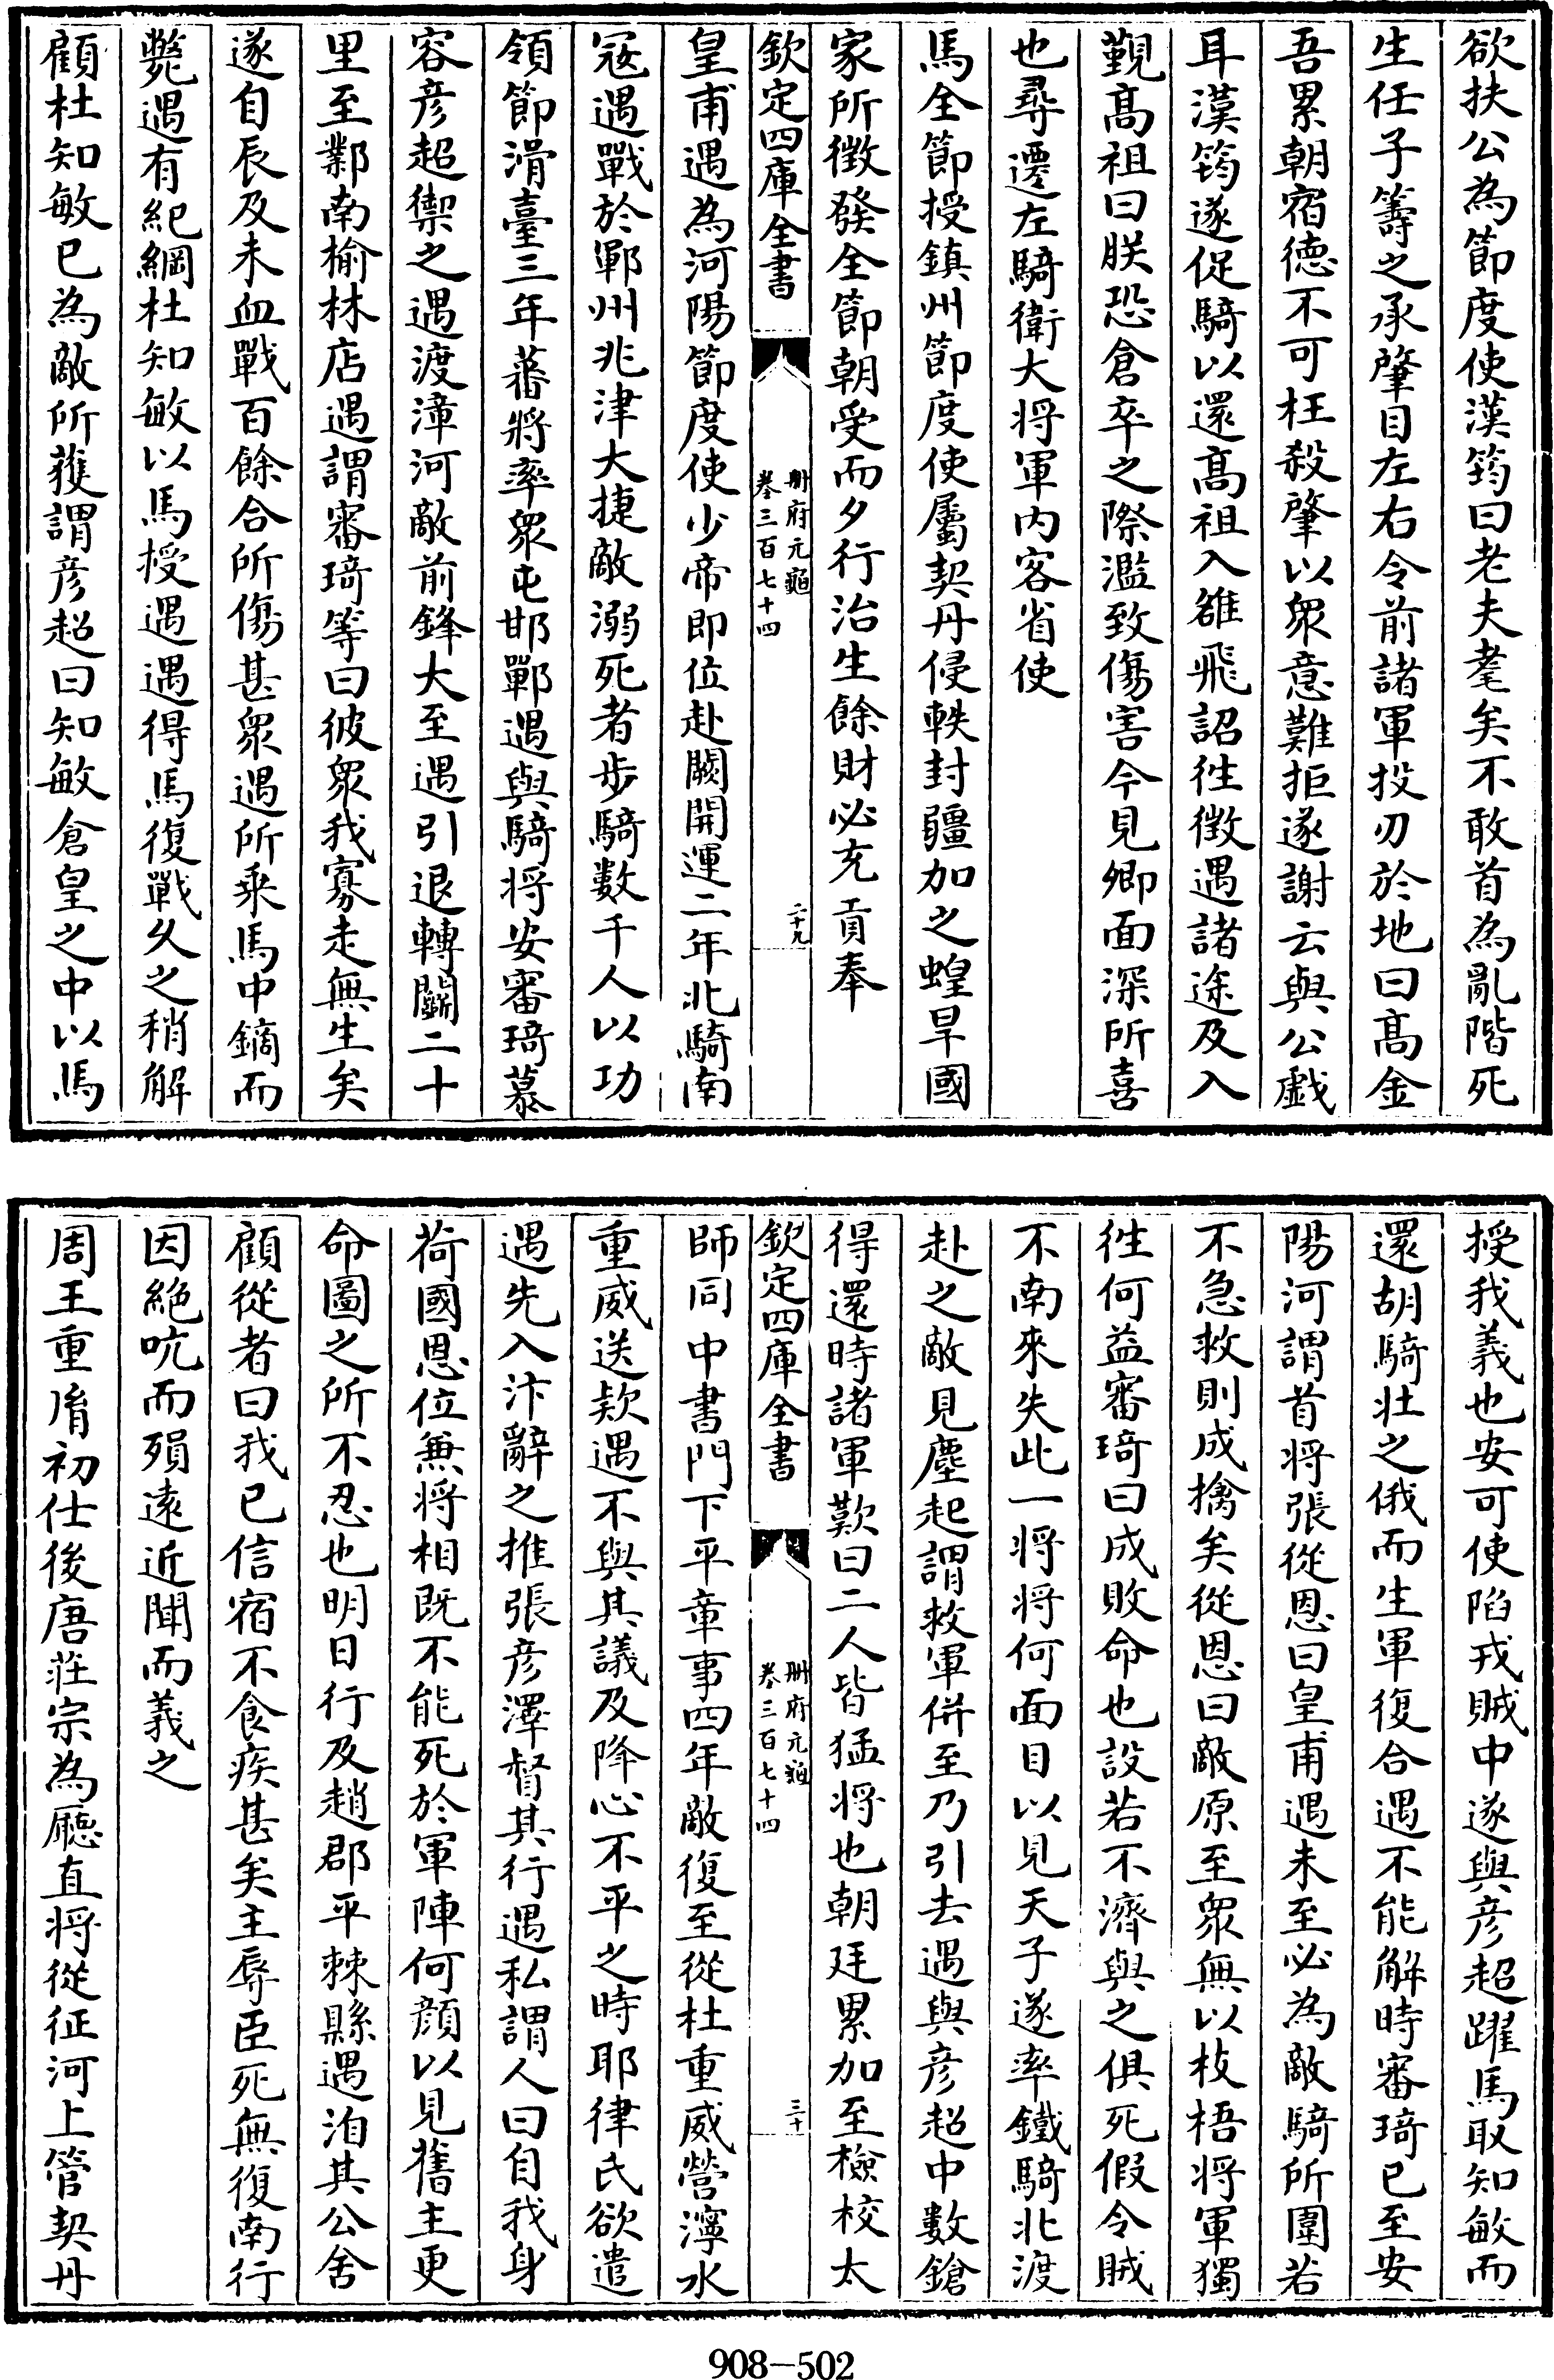 欲扶公為節度使漢筠曰老夫耄矣不敢首為亂階死
生任子籌之承肇目左右令前諸軍投刃於地曰髙金
吾累朝宿德不可枉殺肇以衆意難拒遂謝云與公戯
耳漢筠遂促騎以還髙祖入雒飛詔徃徴遇諸途及入
覲髙祖曰朕恐倉卒之際濫致傷害今見卿面深所喜
也尋遷左騎衛大将軍内客省使
馬全節授鎮州節度使屬契丹侵軼封疆加之蝗旱國
家所徴發全節朝受而夕行治生餘財必充貢奉
欽定四庫全書
冊府元龜
卷三百七十四
二十九
皇甫遇為河陽節度使少帝即位赴闕開運二年北騎南
寇遇戰於鄆州兆津大捷敵溺死者步騎數千人以功
領節滑臺三年蕃將率衆屯邯鄲遇與騎将安審琦慕
容彦超禦之遇渡漳河敵前鋒大至遇引退轉鬬二十
里至鄴南榆林店遇謂審琦等曰彼衆我寡走無生矣
遂自辰及未血戰百餘合所傷甚衆遇所乗馬中鏑而
斃遇有紀綱杜知敏以馬授遇遇得馬復戰久之稍解
顧杜知敏已為敵所獲謂彦超曰知敏倉皇之中以馬
授我義也安可使陷戎賊中遂與彦超躍馬取知敏而
還胡騎壯之俄而生軍復合遇不能解時審琦已至安
陽河謂首将張從恩曰皇甫遇未至必為敵騎所圍若
不急救則成擒矣從恩曰敵原至衆無以枝梧将軍獨
徃何益審琦曰成敗命也設若不濟與之俱死假令賊
不南來失此一将将何面目以見天子遂率鐵騎北渡
赴之敵見塵起謂救軍併至乃引去遇與彦超中數鎗
得還時諸軍歎曰二人皆猛将也朝廷累加至檢校太
欽定四庫全書
冊府元龜
卷三百七十四
三十
師同中書門下平章事四年敵復至從杜重威營滹水
重威送欵遇不與其議及降心不平之時耶律氏欲遣
遇先入汴辭之推張彦澤督其行遇私謂人曰自我身
荷國恩位兼将相既不能死於軍陣何顔以見舊主更
命圖之所不忍也明日行及趙郡平棘縣遇洎其公舍
顧從者曰我已信宿不食疾甚矣主辱臣死無復南行
因絶吭而殞逺近聞而義之
周王重𦙍初仕後唐莊宗為廳直将從征河上管契丹
908-502